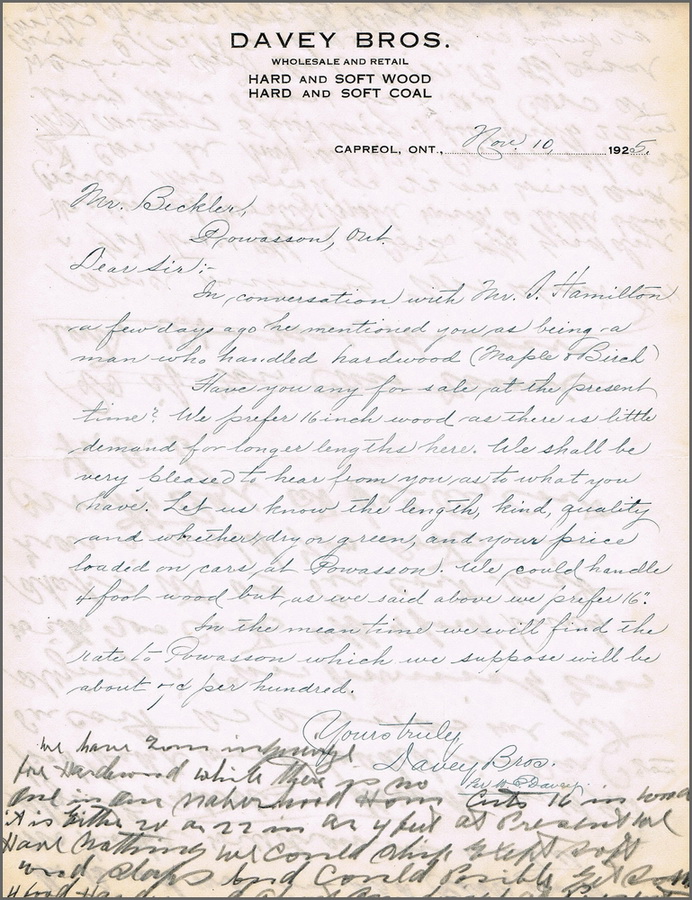 DAVEY BROS.
WHOLESALE AND RETAIL
HARD AND SOFT WOOD
HARD AND SOFT COAL
CAPREOL, ONT., Nov. 10, 1925.
Mr. Beckler,
Powasson, Ont.
Dear Sir:-
In conversation with Mr. S. Hamilton
a few days ago he mentioned you as being a
man who handled hardwood (Maple & Birch)
Have you any for sale at the present
time? We prefer 16 inch wood as there is little
demand for longer lengths here. We shall be
very pleased to hear from you as to what you
have. Let us know the length, kind, quality
and whether dry or green, and your price
loaded on cars at Powasson. We could handle
4 foot wood but as we said above we prefer 16".
In the mean time we will find the
rate to Powasson which we suppose will be
about per hundred.
Yours truly
Davey Bros.
Per Davey
We have your
for Hardwood while there is no
one in our Cuts 16 in wood
it is Either 20 or 22 in but at Present we
Have Nothing we could Ship Exept Soft
wood Slabs and Could Possible Get Som
4 food